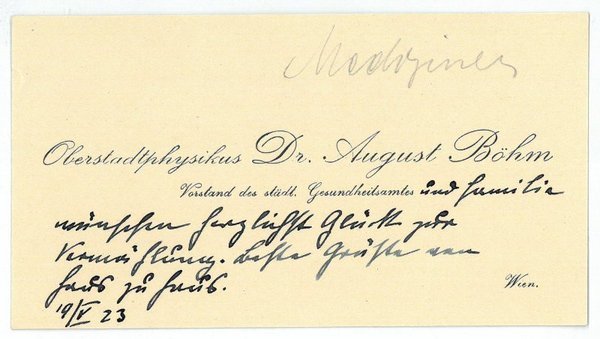 Mediziner
Oberstadtphysikus Dr. August Böhm
Vorstand des städt. Gesundheitsamtes und Familie
wünschen herzlichst Glück zur
Vermählung. Beste Grüße von
Haus zu Haus.
Wien.
19/V 23